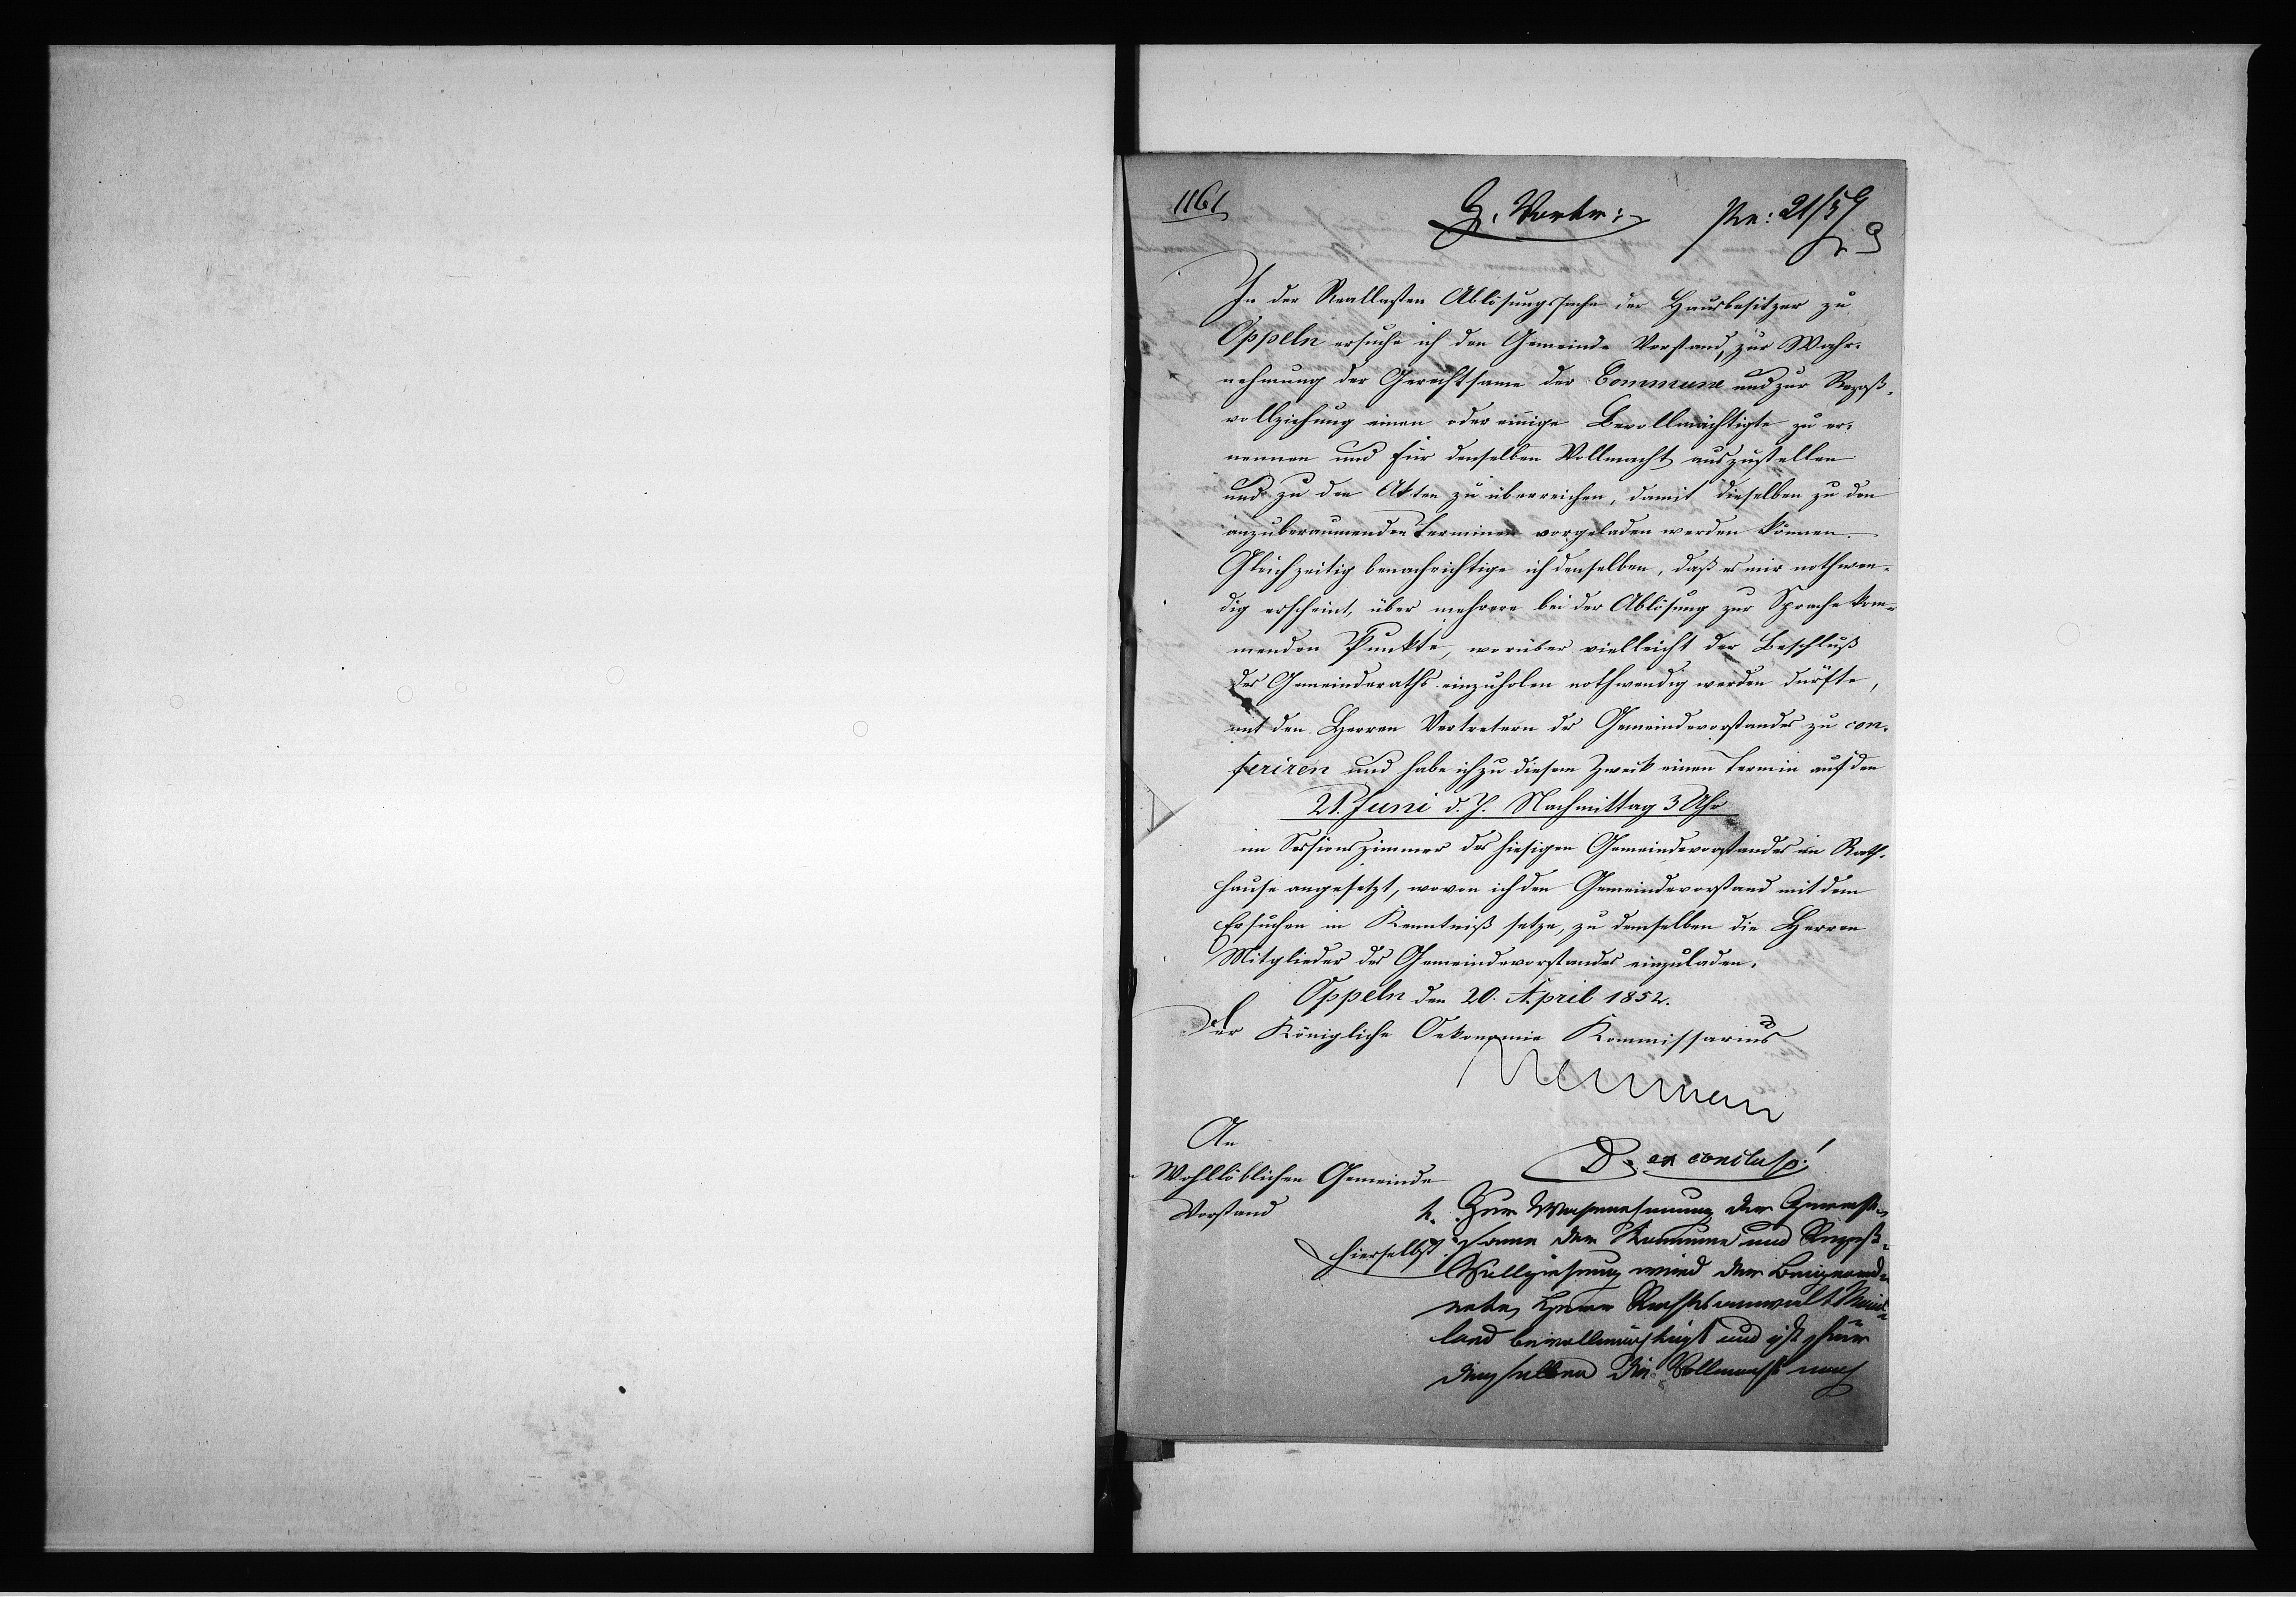 1161
G. Vortr:
Pr: 21/5
In der Reallasten Ablösungssache der Hausbesitzer zu
Oppeln ersuche ich den Gemeinde Vorstand, zur Wahr-
nehmung der Gerechtsame der Commune und zur Rezeß-
vollziehung einen oder einige Bevollmächtigte zu er-
nennen und für denselben Vollmacht auszustellen
und zu den Akten zu überreichen, damit dieselben zu den
anzuberaumenden Terminen vorgeladen werden können.
Gleichzeitig benachrichtige ich denselben, daß es mir nothwen-
dig erscheint, über mehrere bei der Ablösung zur Sprache kom-
menden Punkte, worüber vielleicht der Beschluß
des Gemeinderaths einzuholen nothwendig werden dürfte,
mit den Herren Vertretern des Gemeindevorstandes zu con-
feriren und habe ich zu diesem Zweck einen Termin auf den
21. Juni d. J. Nachmittag 3 Uhr
im Sessionszimmer des hiesigen Gemeindevorstandes im Rath-
hause angesetzt, wovon ich den Gemeindevorstand mit dem
Ersuchen in Kenntniß setze, zu demselben die Herren
Mitglieder des Gemeindevorstandes einzuladen.
Oppeln den 20. April 1852.
Der Königliche Oekonomie Kommissarius
Neuman
An
Wohllöblichen Gemeinde
Vorstand
hierselbst.
D. ex concluso!
1. Zur Wahrnehmung der Gerecht-
same der Kommune und Rezeß-
Vollziehung wird der Beigeord-
nete, Herr Rechtsanwalt
bevollmächtigt und ist für
denselben die Vollmacht nach